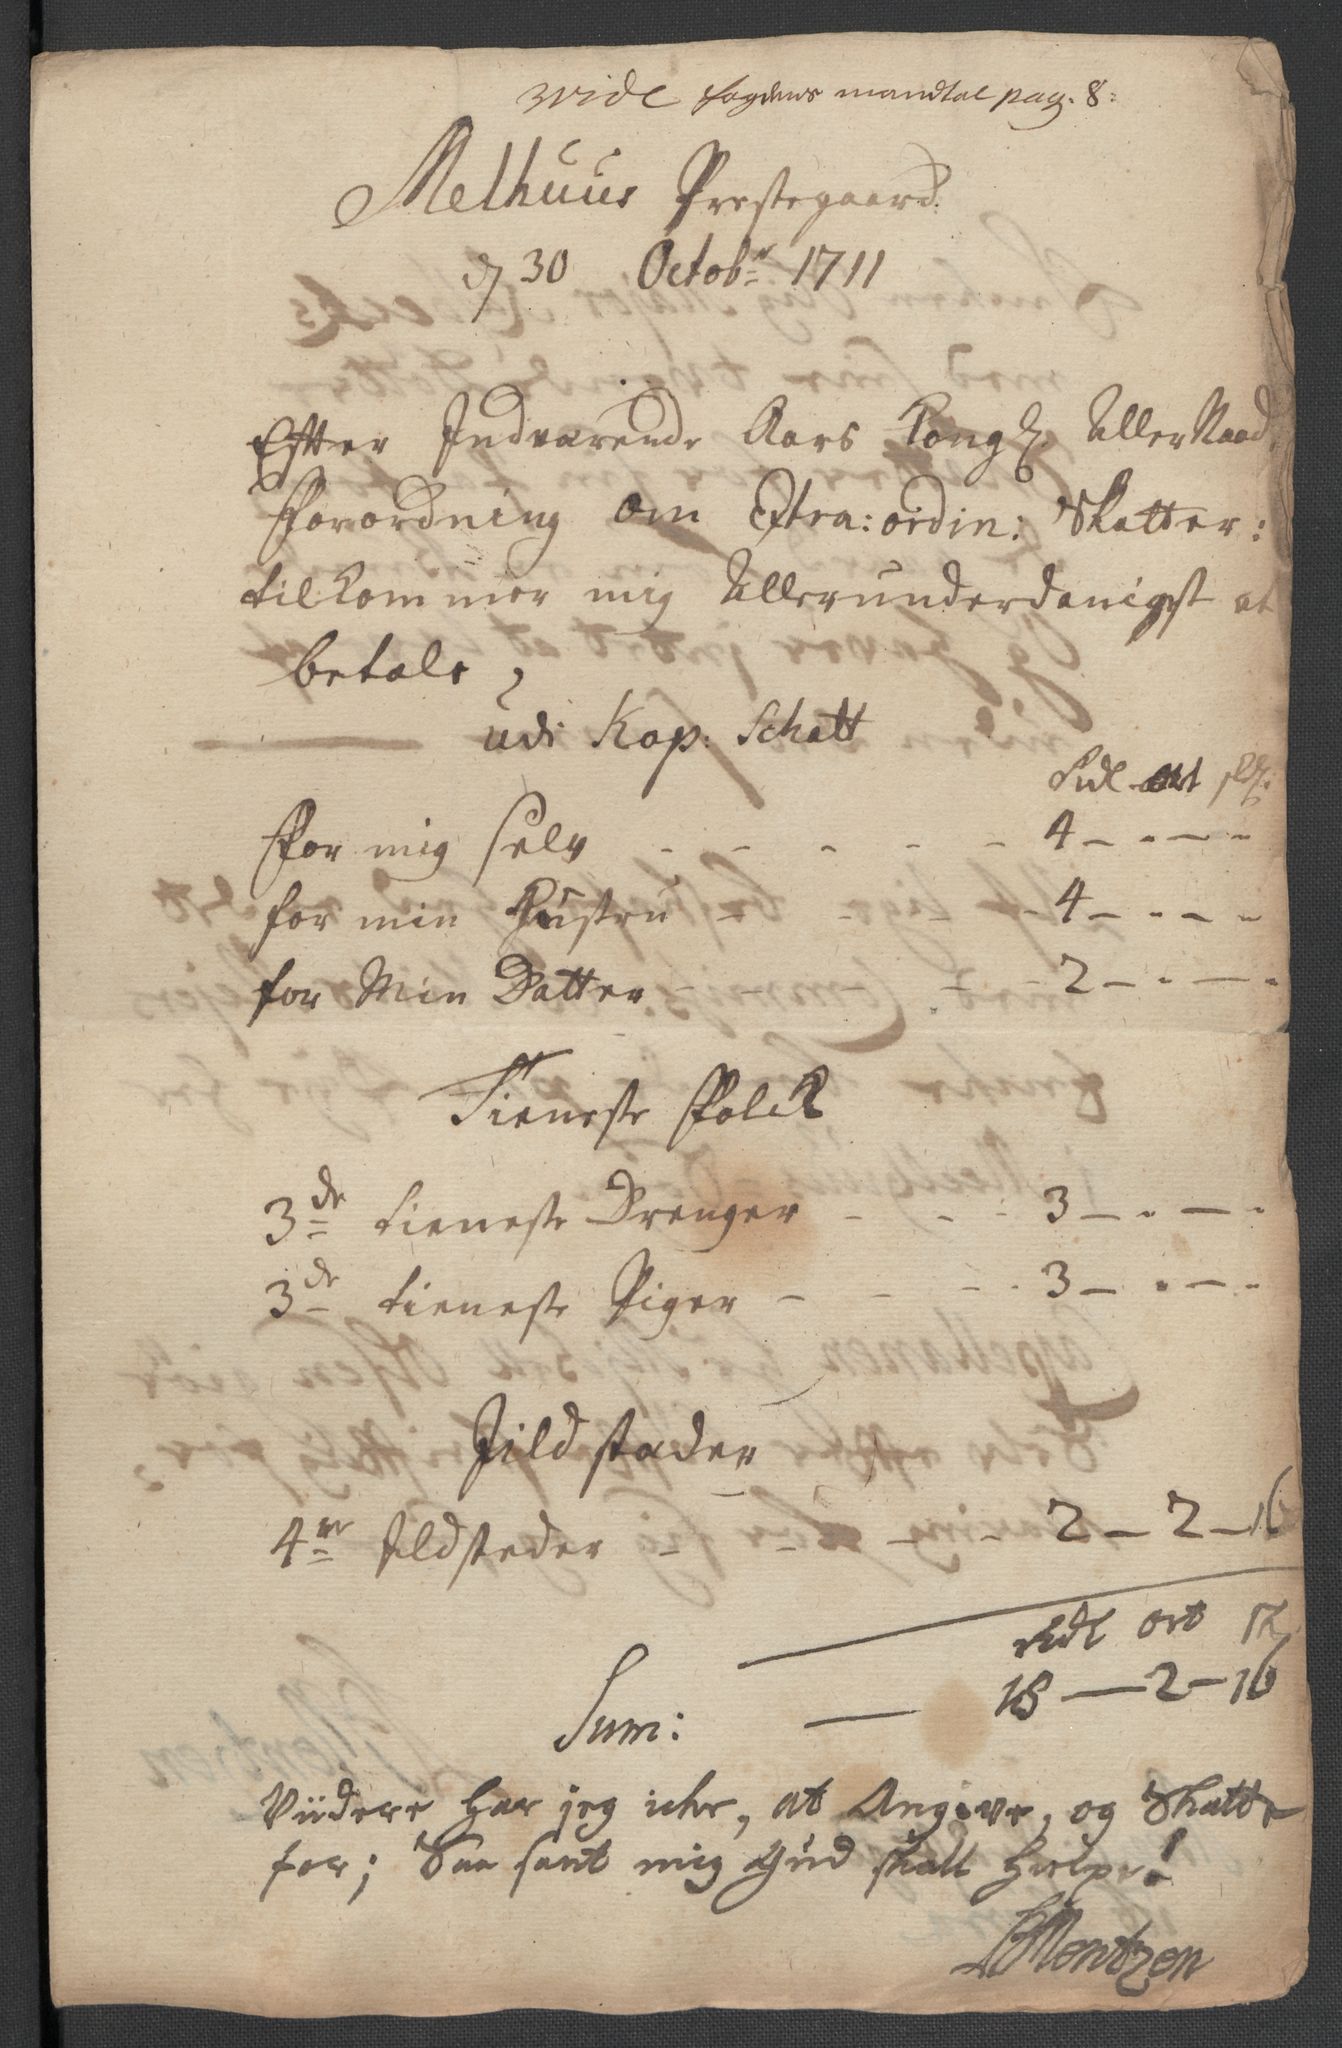 vide fogdens mandtal pag. 8:
Melhuus Prestegaard.
d 30 Octobr 1711
Efter Indværende Aars Kongl. AllerNaad.
Forordning om Extra:ordin: Skatter:
tilkommer mig Allerunderdanigst at
betale,
udi Kop: Schatt
Rdl ort sk.
For mig selv - - - - - 4 - - - -
for min Hustru - - - - 4 - - - -
for Min Datter - - - - 2 - - - -
Tieneste Folck
3de tieneste Drenger - - - 3 - - - -
3de tieneste Piger - - - - 3 - - - -
Jildstæder
4re Ildsteder - - - - 2 - 2 - 16
Rdl ort sk
Sum: — 18 — 2 - 16
Viidere har jeg icke, at Angive, og Skatte
for; Saa sant mig Gud skall hielpe!
Mentzen